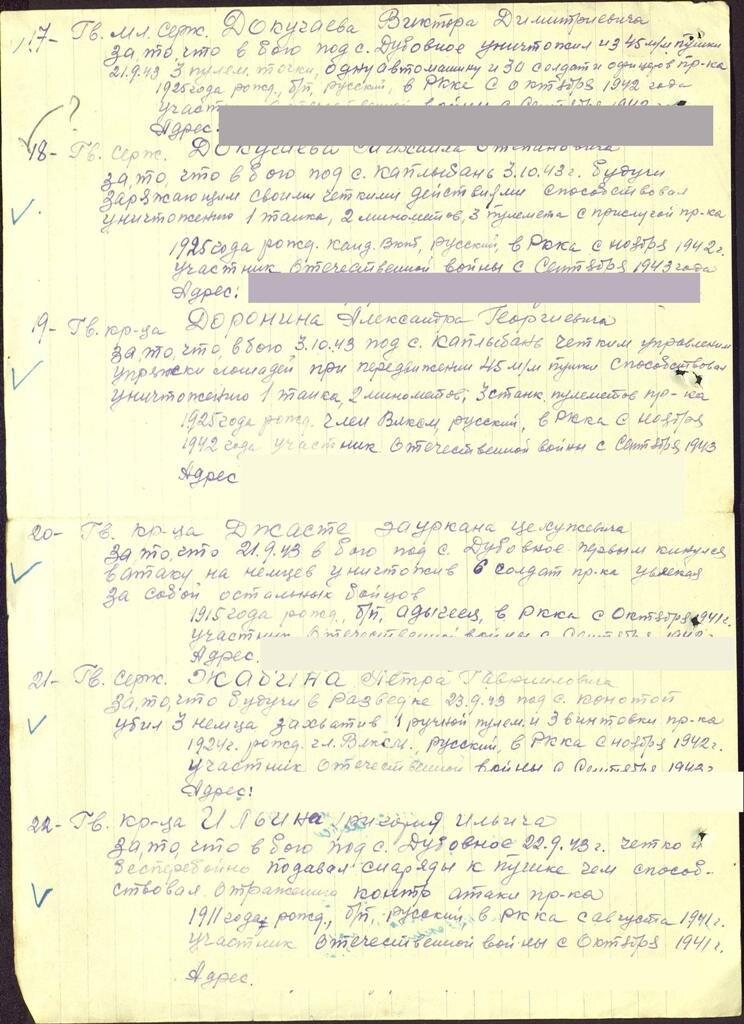 17- Гв. мл. серж. Докучаева Виктора Димитриевича
за то, что в бою под с. Дубовное уничтожил из 45 м/м пушки
21.9.43 3 пулем. точки, одну автомашину и 30 солдат и офицеров пр-ка
1925 года рожд., б/п, русский, в РККА с октября 1942 года
Адрес.
?
18- Гв. серж. Докучаева Михаила Степановича
за то, что в бою под с. Каплыбань 3.10.43 г. будучи
заряжающим своими четкими действиями способствовал
уничтожению 1 танка, 2 минометов, 3 пулемета с прислугой пр-ка
1925 года рожд. канд. ВКП, русский, в РККА с ноября 1942 г.
участник Отечественной войны с Сентября 1943 года
Адрес:
19- Гв. кр-ца Доронина Александра Георгиевича
за то, что, в бою 3.10.43 под с. Каплыбань четким управлением
упряжки лошадей при передвижении 45 м/м пушки способствовал
уничтожению 1 танка, 2 минометов, 3 станк. пулеметов пр-ка
1925 года рожд. член ВЛКСМ, русский, в РККА с ноября
1942 года участник Отечественной войны с Сентября 1943
Адрес
20- Гв. кр-ца Джасте Заурхана Целужевича
за то, что 21.9.43 в бою под с. Дубовное первым кинулся
в атаку на немцев уничтожив 6 солдат пр-ка увлекая
за собой остальных бойцов
1915 года рожд., б/п, адыгеец, в РККА с Октября 1941 г.
участник Отечественной войны с Сентября
Адрес.
21- Гв. серж. Жабина Петра Гаврииловича
за то, что будучи в разведке 23.9.43 под с. Конотоп
убил 3 немца захватив 1 ручной пулем. и 3 винтовки пр-ка
1924 г. рожд. чл. ВЛКСМ, русский, в РККА с ноября 1942 г.
участник Отечественной войны с Сентября
Адрес:
22- Гв. кр-ца Ильина Григория Ильича
за то, что в бою под с. Дубовное 22.9.43 г. четко и
бесперебойно подавал снаряды к пушке чем способ-
ствовал отражению контр атаки пр-ка
1911 года рожд., б/п, русский, в РККА с августа 1941 г.
участник Отечественной войны с Октября 1941 г.
Адрес.